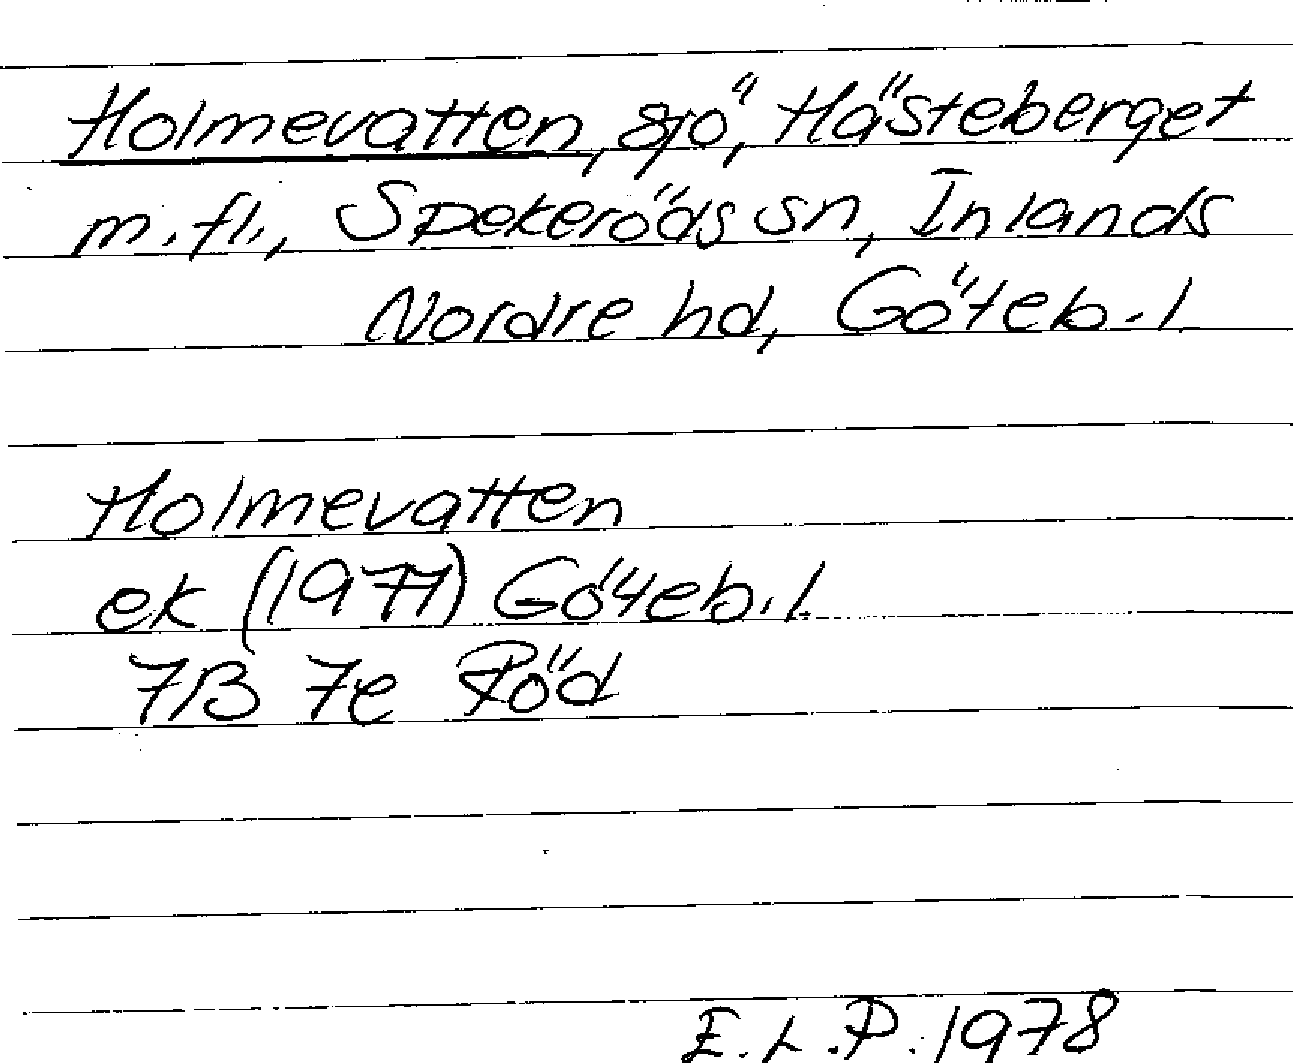 Holmevatten, sjö, Hästeberget
m.fl., Spekeröds sn, Inlands
Nordre hd, Göteb.l.
Holmevatten
ek (1977) Göteb.l.
7B 7e Röd
E.L.P. 1978